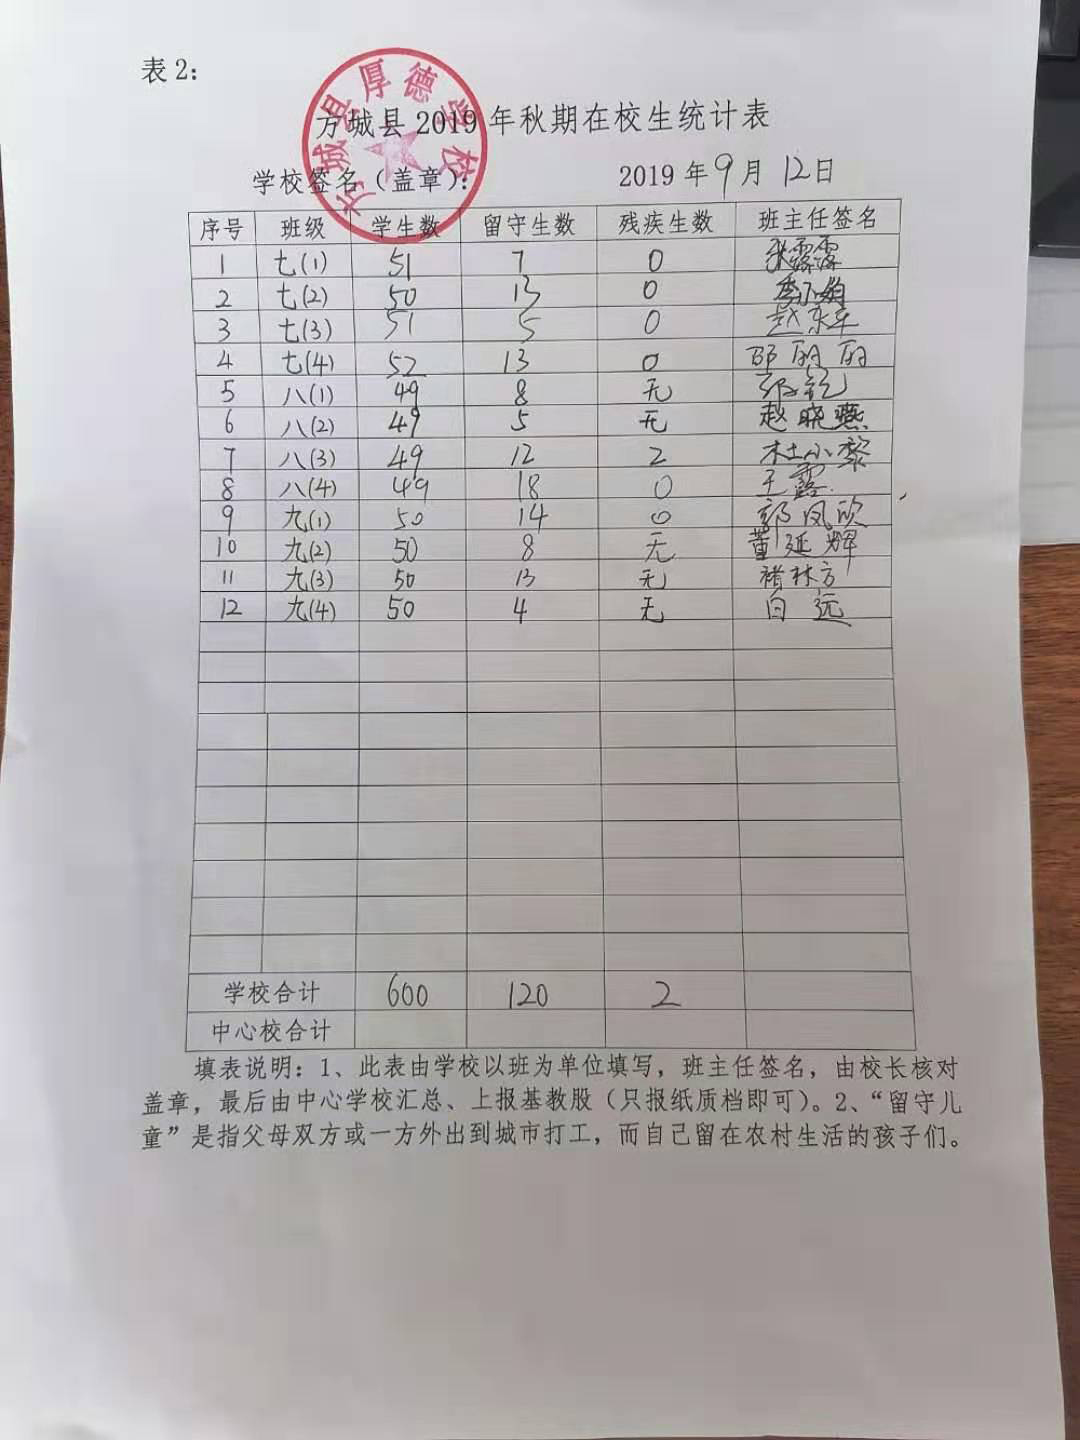 表2：
方城县厚德学校
方城县2019年秋期在校生统计表
学校签名（盖章）： 2019年9月12日
序号 班级 学生数 留守生数 残疾生数 班主任签名
1 七(1) 51 7 0 张露露
2 七(2) 50 13 0
3 七(3) 51 5 0 赵东平
4 七(4) 52 13 0 邵丽丽
5 八(1) 49 8 无
6 八(2) 49 5 无 赵晓燕
7 八(3) 49 12 2 杜小黎
8 八(4) 49 18 0 王露
9 九(1) 50 14 0 郭凤欣
10 九(2) 50 8 无 董延辉
11 九(3) 50 13 无 褚林方
12 九(4) 50 4 无 白远
学校合计 600 120 2
中心校合计
填表说明：1、此表由学校以班为单位填写，班主任签名，由校长核对
盖章，最后由中心学校汇总、上报基教股（只报纸质档即可）。2、“留守儿
童”是指父母双方或一方外出到城市打工，而自己留在农村生活的孩子们。